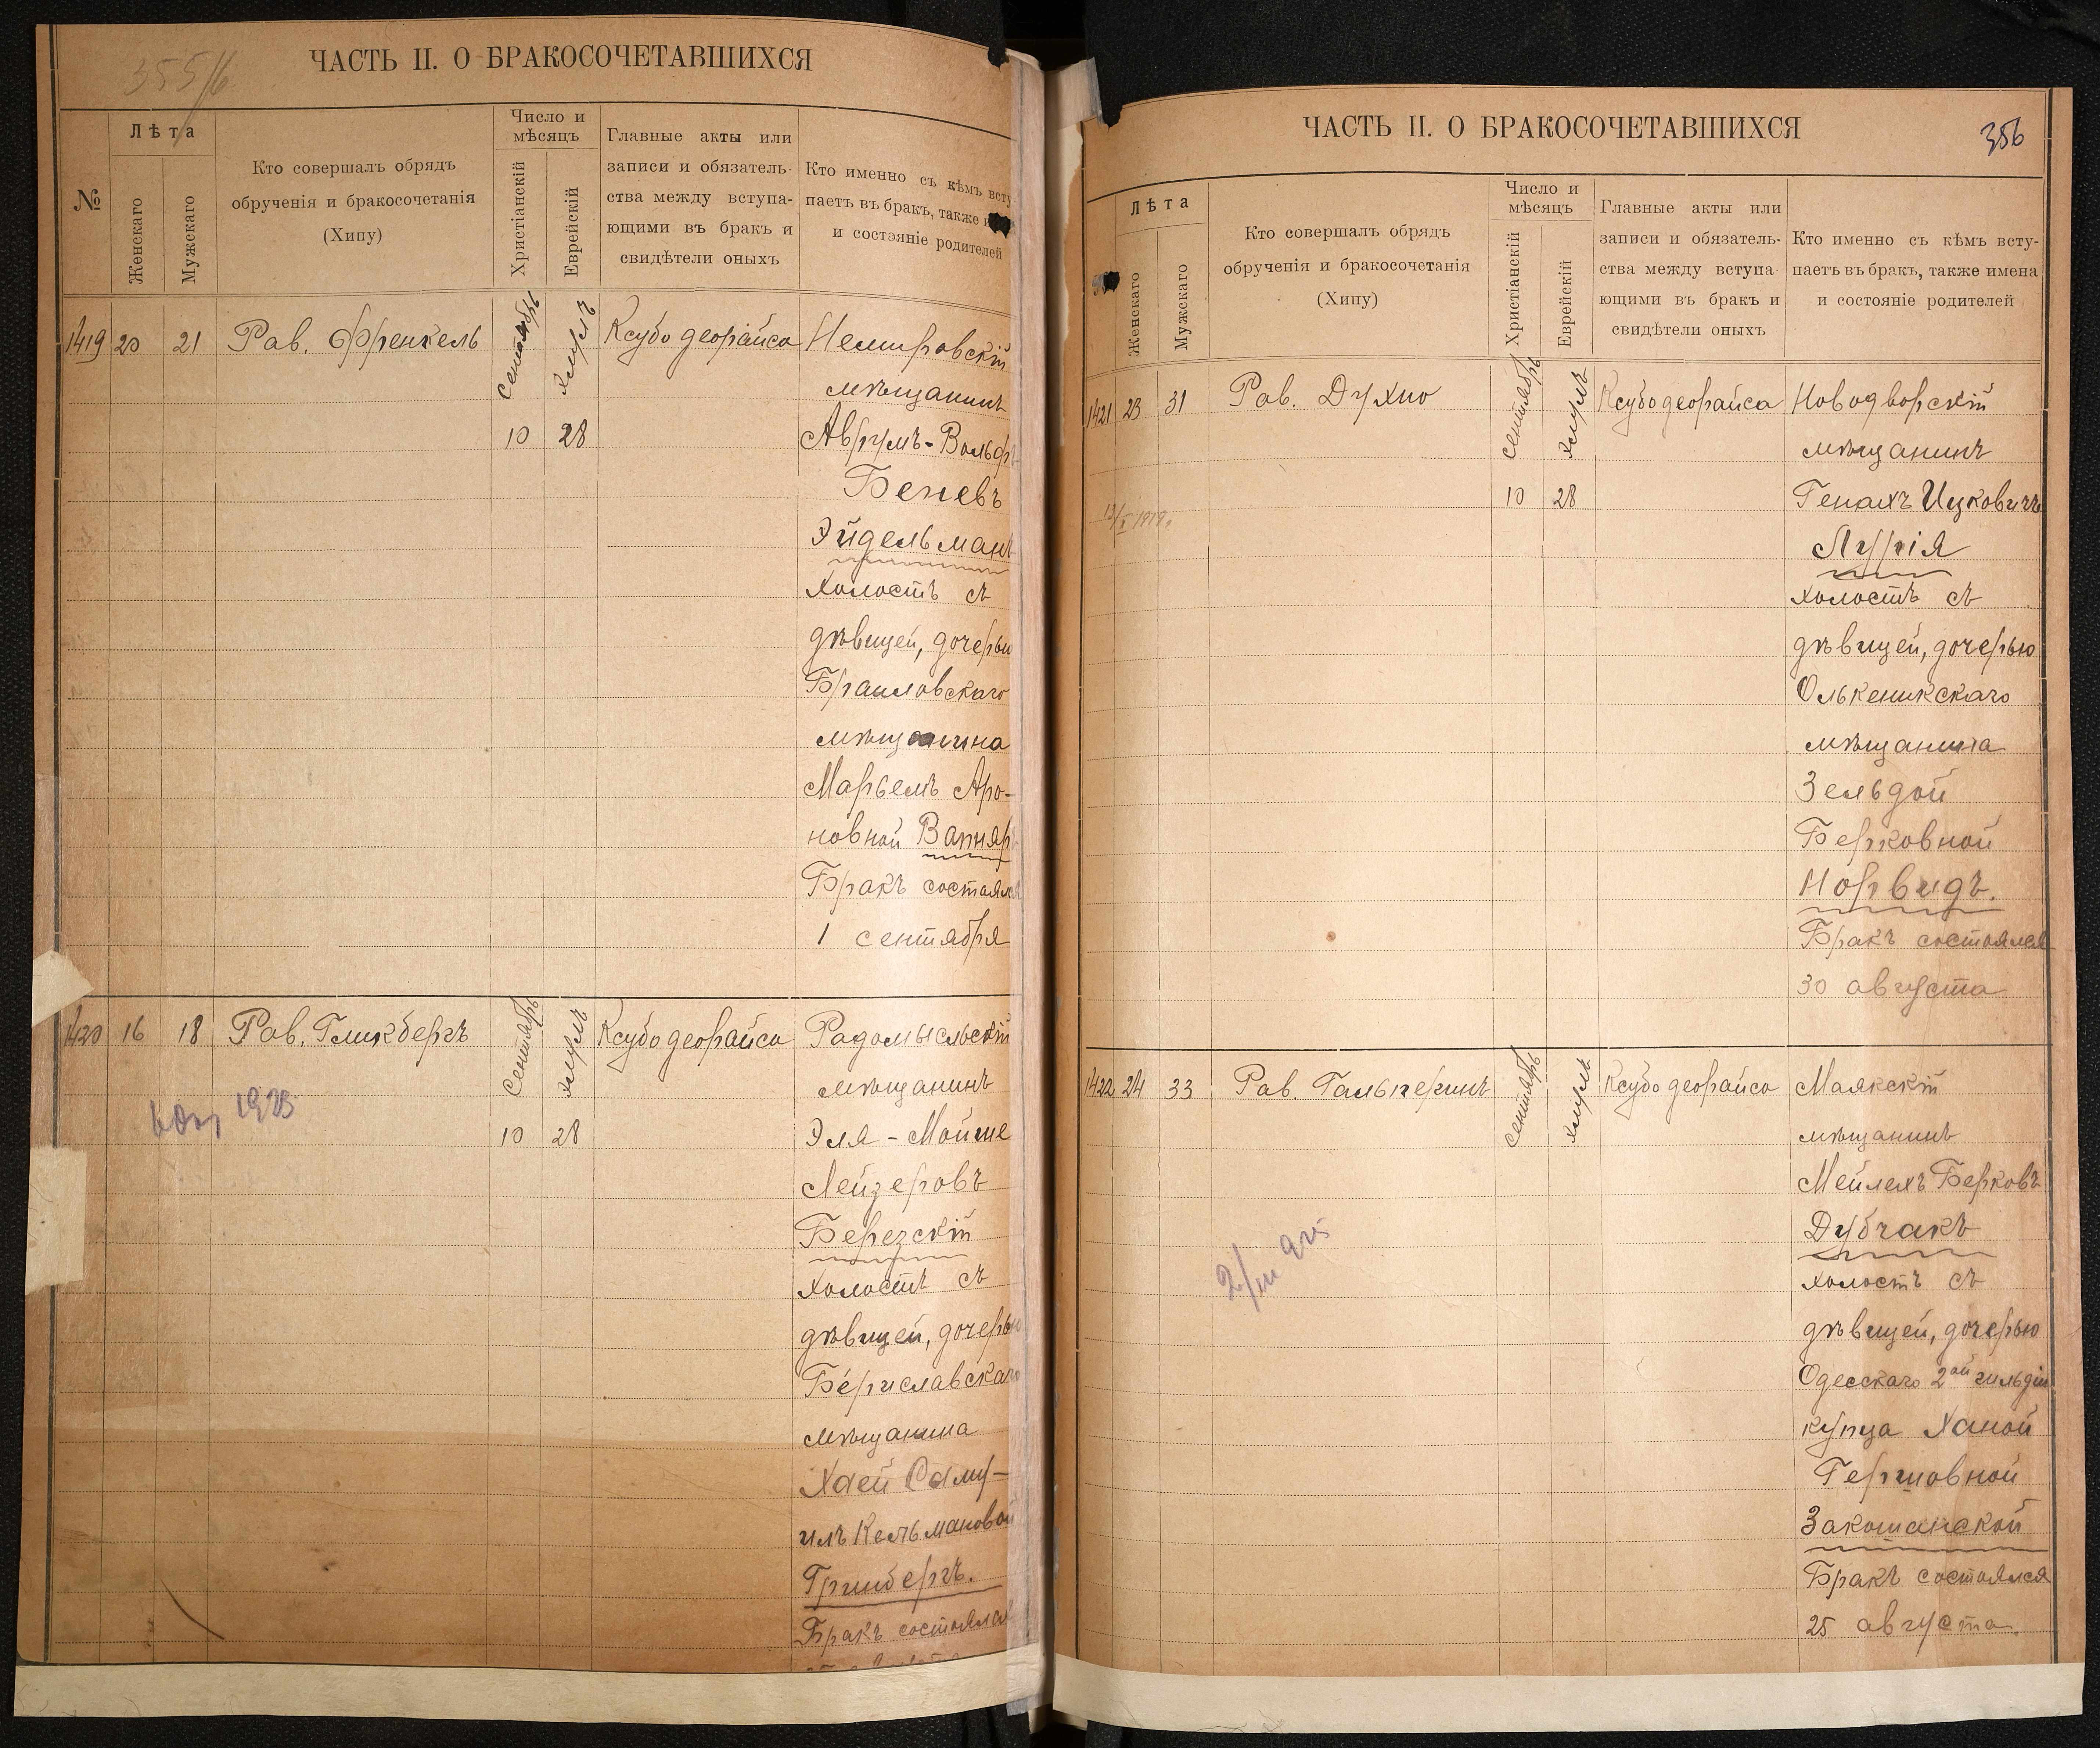 355/6
ЧАСТЬ II. О БРАКОСОЧЕТАВШИХСЯ
№
Лѣта
Женскаго
Мужскаго
Кто совершалъ обрядъ
обрученія и бракосочетанія
(Хипу)
Число и
мѣсяцъ
Христіанскій
Еврейскій
Главные акты или
записи и обязатель-
ства между вступа-
ющими въ бракъ и
свидѣтели оныхъ
Кто именно съ кѣмъ всту
паетъ въ бракъ, также
и состояніе родителей
1419 20 21 Рав. Френкель сентябрь элулъ Ксубо деорайсо Немировскій
мѣщанинъ
10 28 Аврумъ-Вольфъ
Беневъ
Эйдельманъ
холостъ съ
дѣвицей, дочерью
Браиловскаго
мѣщанина
Марьемъ Аро-
новной Вапняр
Бракъ состоялся
1 сентября
1420 16 18 Рав. Гликбергъ сентябрь элулъ Ксубо деорайсо Радомысльскій
мѣщанинъ
1923
10 28 Эля-Мойше
Лейзеровъ
Березскій
холостъ съ
дѣвицей, дочерью
Бериславскаго
мѣщанина
Хаей Саму-
илъ Кельмановой
Гринбергъ.
Бракъ состоялся
356
ЧАСТЬ II. О БРАКОСОЧЕТАВШИХСЯ
Лѣта
Женскаго
Мужскаго
Кто совершалъ обрядъ
обрученія и бракосочетанія
(Хипу)
Число и
мѣсяцъ
Христіанскій
Еврейскій
Главные акты или
записи и обязатель-
ства между вступа-
ющими въ бракъ и
свидѣтели оныхъ
Кто именно съ кѣмъ всту-
паетъ въ бракъ, также имена
и состояніе родителей
1421 23 31 Рав. Духно сентябрь элулъ Ксубо деорайса Новодворскій
мѣщанинъ
10 28 Генахъ Ицковичъ
1919.
Лурія
холостъ съ
дѣвицей, дочерью
Олькеникскаго
мѣщанина
Зельдой
Берковной
Норвидъ.
Бракъ состоялся
30 августа
1422 24 33 Рав. Гальперинъ сентябрь элулъ Ксубо деорайсо Маякскій
мѣщанинъ
Мейлехъ Берковъ
Дубчакъ
холостъ съ
дѣвицей, дочерью
Одесскаго 2ой гильдіи
купца Ханой
Гершовной
Закошанской
Бракъ состоялся
25 августа.